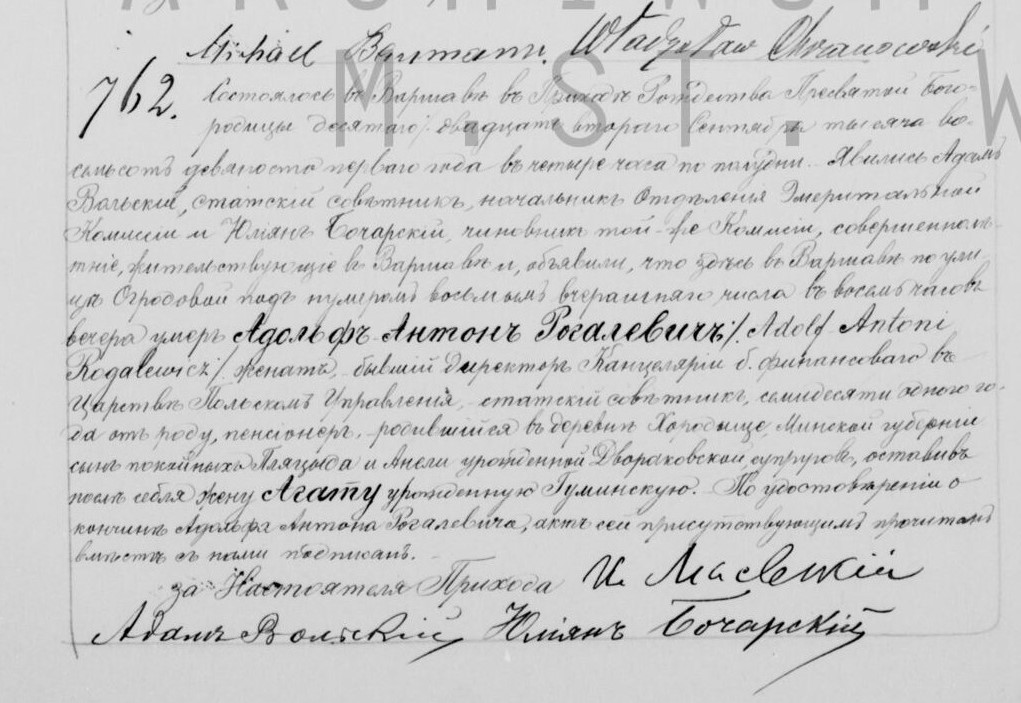 Michael Bautmann. Władysław Chrzanowski
762. Состоялось въ Варшавѣ въ Приходѣ Рождества Пресвятой Бого-
родицы десятаго /. двадцать втораго Сентября тысяча во-
семьсотъ девяносто перваго года въ четыре часа по полудни. Явились Адамъ
Вольскій, статскій совѣтникъ, начальникъ Отдѣленія Эмеритальной
Коммисіи и Юліянъ Бочарскій, чиновникъ той-же Коммисіи, совершеннолѣ-
тніе, жительствующіе въ Варшавѣ и, объявили, что здѣсь въ Варшавѣ по ули-
цѣ Огродовой подъ нумеромъ восьмымъ вчерашняго числа въ восемь часовъ
вечера умеръ Адольфъ Антонъ Рогалевичъ /. Adolf Antoni
Rogalewicz /. женатъ, бывшій Директоръ Канцеляріи б. финансоваго въ
Царствѣ Польскомъ Управленія, статскій совѣтникъ, семидесяти одного го-
да отъ роду, пенсіонеръ, родившійся въ деревнѣ Хородыще, Минской губерніи
сынъ покойныхъ Пляцыда и Анели урожденной Двораковской, супруговъ, оставивъ
послѣ себя жену Агату урожденную Гуминскую. По удостовѣреніи о
кончинѣ Адольфа Антона Рогалевича, актъ сей присутствующимъ прочитанъ
вмѣстѣ съ нами подписанъ.
за Настоятеля Прихода
Адамъ Вольскій Юліянъ Бочарскій